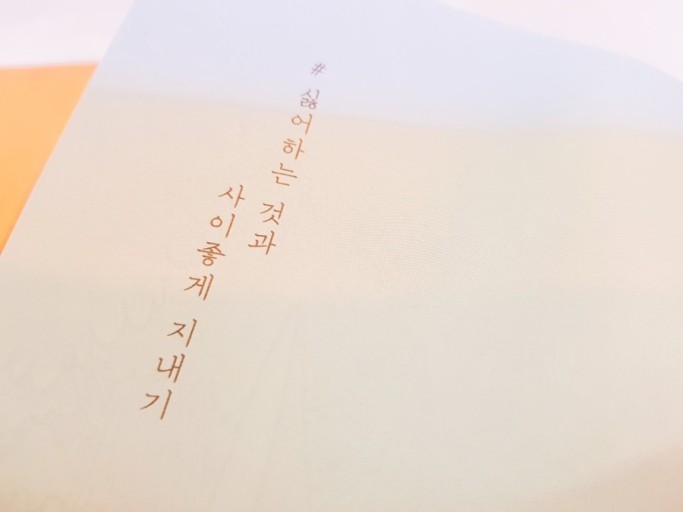 # 싫어하는 것과
사이좋게 지내기